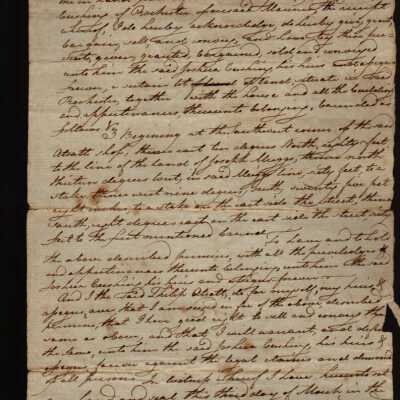 Cushing of Rochester aforesaid Mariner, the receipt
whereof, I do hereby acknowledge, do hereby give, grant,
bargain, sell, and convey, and have by these pre
sents, given, granted, bargained, sold and conveyed
unto him the said Joshua Cushing, his heirs and assigns
forever, a certain lot of land, situate in said
Rochester, together with the house and all the buildings
and appurtenances, thereunto belonging, bounded as
follows Viz Beginning at the Southwest corner of the said
shop, thence east ten degrees North, eighty feet,
to the line of the land of Joseph Meiggs, thence north
thirteen degrees west, in said Meiggs line, sixty feet, to a
stake thence west nine degrees South, seventy five feet
eight inches, to a stake on the east side the street, thence
South, eight degrees east on the east side the street sixty
feet to the first mentioned bound To have and to hold
the above described premises, with all the priviledges &
and appurtenances thereunto belonging, unto him the said
Joshua Cushing his heirs and assigns forever.
And I the said Philip do for myself, my heirs &
assigns, aver that I am of the above described
premises, that I have good right to sell and convey the
same as above, and that I will warrant, and defend
the same, unto him the said Joshua Cushing his heirs &
assigns forever against the legal claims and demands
of all persons In testimony whereof I have hereunto set
my hand and seal this third day of March in the